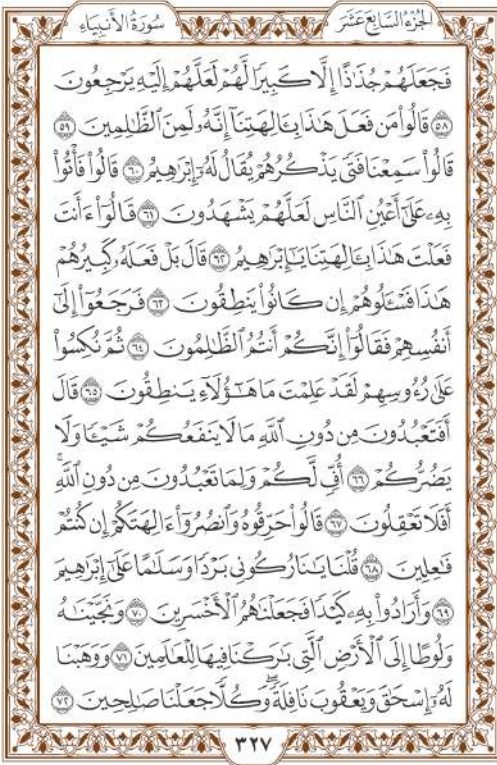 الجُزْءُ السَّابِعَ عَشَرَ سُورَةُ الأَنبِيَاءِ
فَجَعَلَهُمْ جُذَٰذًا إِلَّا كَبِيرًا لَّهُمْ لَعَلَّهُمْ إِلَيْهِ يَرْجِعُونَ
٥٨ قَالُوا۟ مَن فَعَلَ هَٰذَا بِـَٔالِهَتِنَآ إِنَّهُۥ لَمِنَ ٱلظَّٰلِمِينَ ٥٩
قَالُوا۟ سَمِعْنَا فَتًى يَذْكُرُهُمْ يُقَالُ لَهُۥٓ إِبْرَٰهِيمُ ٦٠ قَالُوا۟ فَأْتُوا۟
بِهِۦ عَلَىٰٓ أَعْيُنِ ٱلنَّاسِ لَعَلَّهُمْ يَشْهَدُونَ ٦١ قَالُوٓا۟ ءَأَنتَ
فَعَلْتَ هَٰذَا بِـَٔالِهَتِنَا يَٰٓإِبْرَٰهِيمُ ٦٢ قَالَ بَلْ فَعَلَهُۥ كَبِيرُهُمْ
هَٰذَا فَسْـَٔلُوهُمْ إِن كَانُوا۟ يَنطِقُونَ ٦٣ فَرَجَعُوٓا۟ إِلَىٰٓ
أَنفُسِهِمْ فَقَالُوٓا۟ إِنَّكُمْ أَنتُمُ ٱلظَّٰلِمُونَ ٦٤ ثُمَّ نُكِسُوا۟
عَلَىٰ رُءُوسِهِمْ لَقَدْ عَلِمْتَ مَا هَٰٓؤُلَآءِ يَنطِقُونَ ٦٥ قَالَ
أَفَتَعْبُدُونَ مِن دُونِ ٱللَّهِ مَا لَا يَنفَعُكُمْ شَيْـًٔا وَلَا
يَضُرُّكُمْ ٦٦ أُفٍّ لَّكُمْ وَلِمَا تَعْبُدُونَ مِن دُونِ ٱللَّهِ ۖ
أَفَلَا تَعْقِلُونَ ٦٧ قَالُوا۟ حَرِّقُوهُ وَٱنصُرُوٓا۟ ءَالِهَتَكُمْ إِن كُنتُمْ
فَٰعِلِينَ ٦٨ قُلْنَا يَٰنَارُ كُونِى بَرْدًا وَسَلَٰمًا عَلَىٰٓ إِبْرَٰهِيمَ
٦٩ وَأَرَادُوا۟ بِهِۦ كَيْدًا فَجَعَلْنَٰهُمُ ٱلْأَخْسَرِينَ ٧٠ وَنَجَّيْنَٰهُ
وَلُوطًا إِلَى ٱلْأَرْضِ ٱلَّتِى بَٰرَكْنَا فِيهَا لِلْعَٰلَمِينَ ٧١ وَوَهَبْنَا
لَهُۥٓ إِسْحَٰقَ وَيَعْقُوبَ نَافِلَةً ۖ وَكُلًّا جَعَلْنَا صَٰلِحِينَ ٧٢
٣٢٧